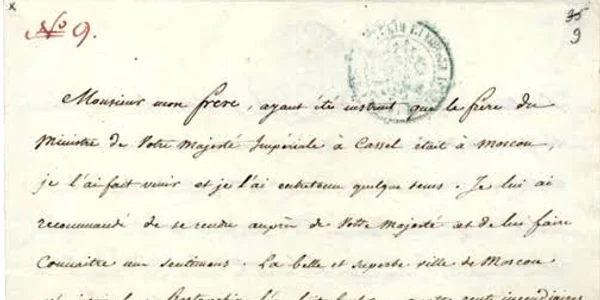 No 9.
35
9
Monsieur mon frère, ayant été instruit que le frère du
Ministre de Votre Majesté Impériale à Cassel était à Moscou,
je l'ai fait venir et je l'ai entretenu quelque tems. Je lui ai
recommandé de se rendre auprès de Votre Majesté et de lui faire
connaitre mes sentimens. La belle et superbe ville de Moscou